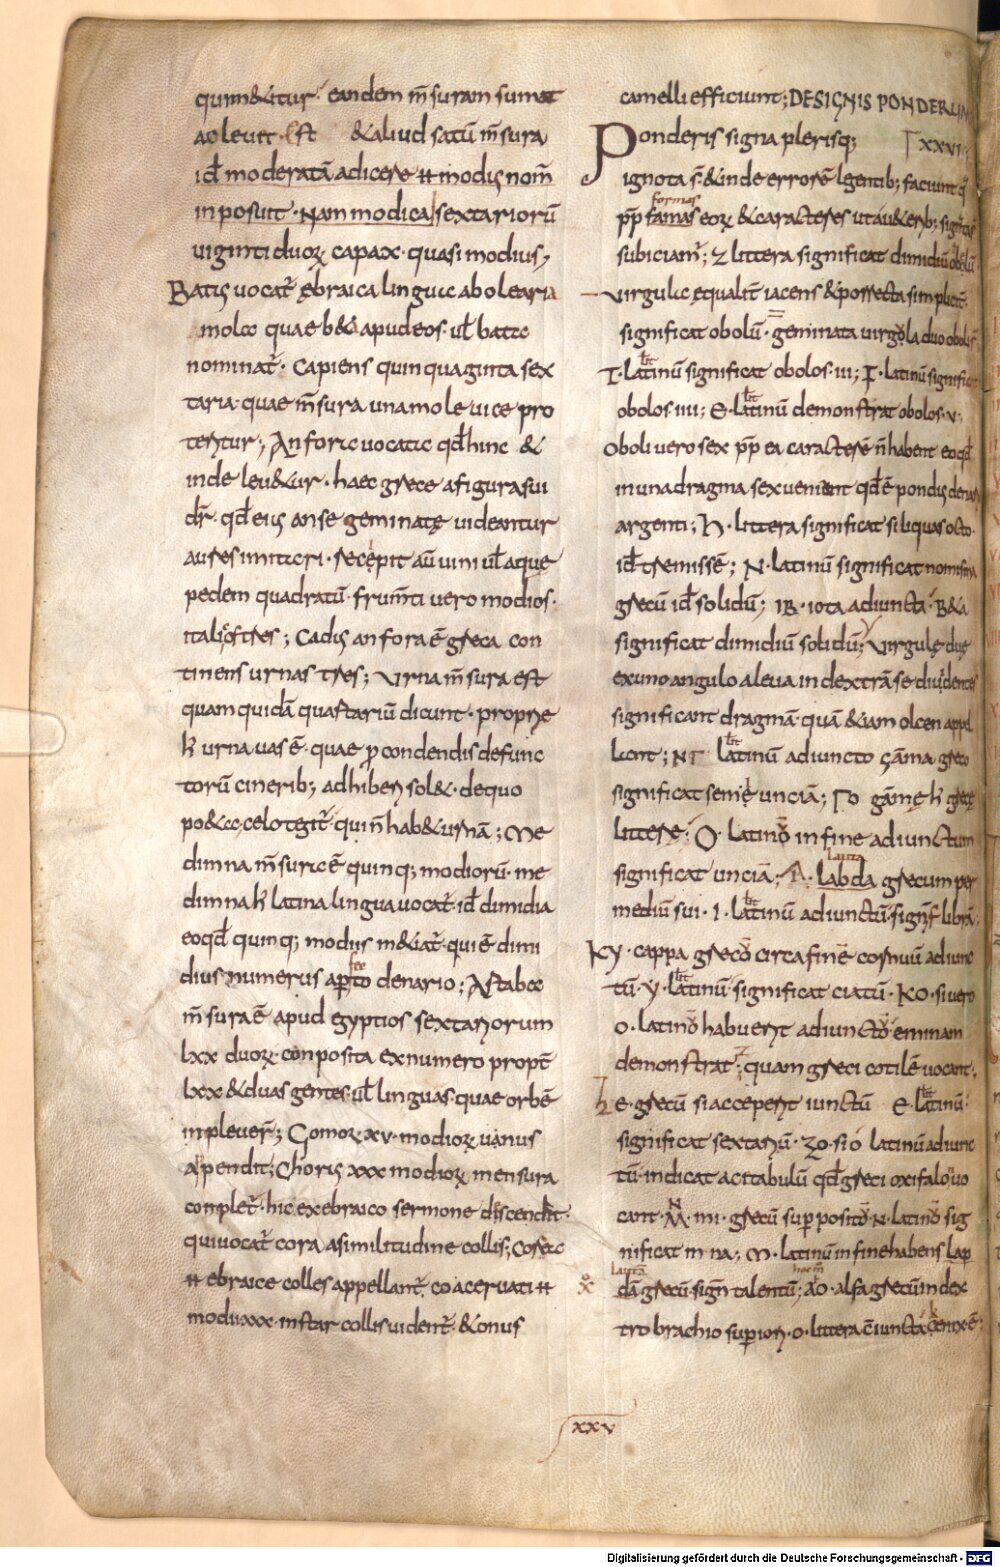 quinn&itur· eandem m̄suram sumat
aoleuet· Est &aliud satū m̄sura
id̄ moderatā adicere ħ modiis nom̄
inposuit· Nam modica sextariorū
viginti duoꝝ capax· quasi modius;
Batus vocat̄ ębraica lingua abolearia
mola quae b&apudeos· ul̄ batta
nominat̄· Capiens quinquaginta sex
taria· quae m̄sura una molę uice pro
teritur; Anforæ vocata qd̄hinc &
inde leu&ur· haec grece afigurasui
dr̄· qd̄ eius anse geminatę uideantur
aures imitari· recepit aū uini ul̄aque
pedem quadratū· frum̄ti vero modios·
italicos tres; Cadus anfora ē greca con
tinens urnas tres; Vrna m̄sura est
quam quidā quartariū dicunt· propriae
ħ urna uas ē· quae ꝓ condendis defunc
torū cinerib; adhiberi sol&· dequo
po&a· celo tegit̄· qui n̄ hab& urnā; Me
dimna m̄sura ē quinq; modiorū· me
dimna ħ latina lingua uocat̄· id̄ dimidia
eoqd̄ quinq; modiis m&iat̄· qui ē dimi
dius numerus a perfecto denario; Artaba
m̄sura ē apud egyptios sextariorum
lxx duoꝝ· conposita ex numero propt̄
lxx &duas gentes· ul̄ linguas· quae orbē
inpleuer̄; Gomor xv· modioꝝ uanus
apendit; Choris xxx modioꝝ mensura
complet̄· hic ex ebraico sermone discendit·
qui uocat̄ cora asimilitudine collis; Corea
ħ ebraice colles appellant̄· coaceruati ħ
modii xxx· instar collis uident̄· & onus
camelli efficiunt; DESIGNIS PONDERUM
XXVI
Ponderis signa plerisq;
ignota s̄· & inde errorē lgentib; faciunt q̄
formas
pp̄ famas eoꝝ & caracteres ut a u&erib; signata s̄
subiciam̄; Z littera significat dimidiū obolū
– virgula equalit̄ iacens &porrecta simplicit̄·
significat obolū· = geminata virgola duo obolis
lit̄
I· latinū significat obolos· iii; Ƒ· latinū significat
lit̄
obolos iiii; E· latinū demonstrat obolos· v·
Oboli vero sex pp̄ ea caracterē n̄ habent eoqd̄
in una dragma sex ueniunt qd̄ ē pondus denarii
argenti; H· littera significat siliquas octo·
id̄ tremissē; N· latinū significat nomisma
grecū id̄ solidū; IB· iota adiuncta· B&a
significat dimidiū solidū; Virgulę duę
ex uno angulo aleua in dextrā se diuidentes
significant dragmā quā &iam olcen appel
lit̄
lant; NΓ latinū adiuncto gāma greco
significat semē unciā; Γo gāmę ħ grece
litterę· O· latino in fine adiunctum
lauta
significat unciā; Λ· labda grecum per
lit̄
mediū sui· I· latinū adiunctū· signf̄ librā;
Ky· cappa greco circa finē cornuū adiunc
lit̄
tū· y· latinū· significat ciatū· KO· si uero
o· latino habuerit adiuncto· eminam
demonstrat; quam greci cotilē uocant·
lit̄
Ze· grecū si acceperit iunctū E· latinū·
significat sextariū· Zo· si ó latinū adiunc
tū· indicat acitabulū qd̄ greci oxifalo uo
N
cant· M· mi· grecū supposito· N· latino sig
nificat m na; M· latinū in fine habens lap
lauta
dā grecū sign̄ talentū; áO· alfa grecū in dex
tro brachio superiori· o· littera ē iuncta cenix ē·
XXV
Digitalisierung gefördert durch die Deutsche Forschungsgemeinschaft - DFG